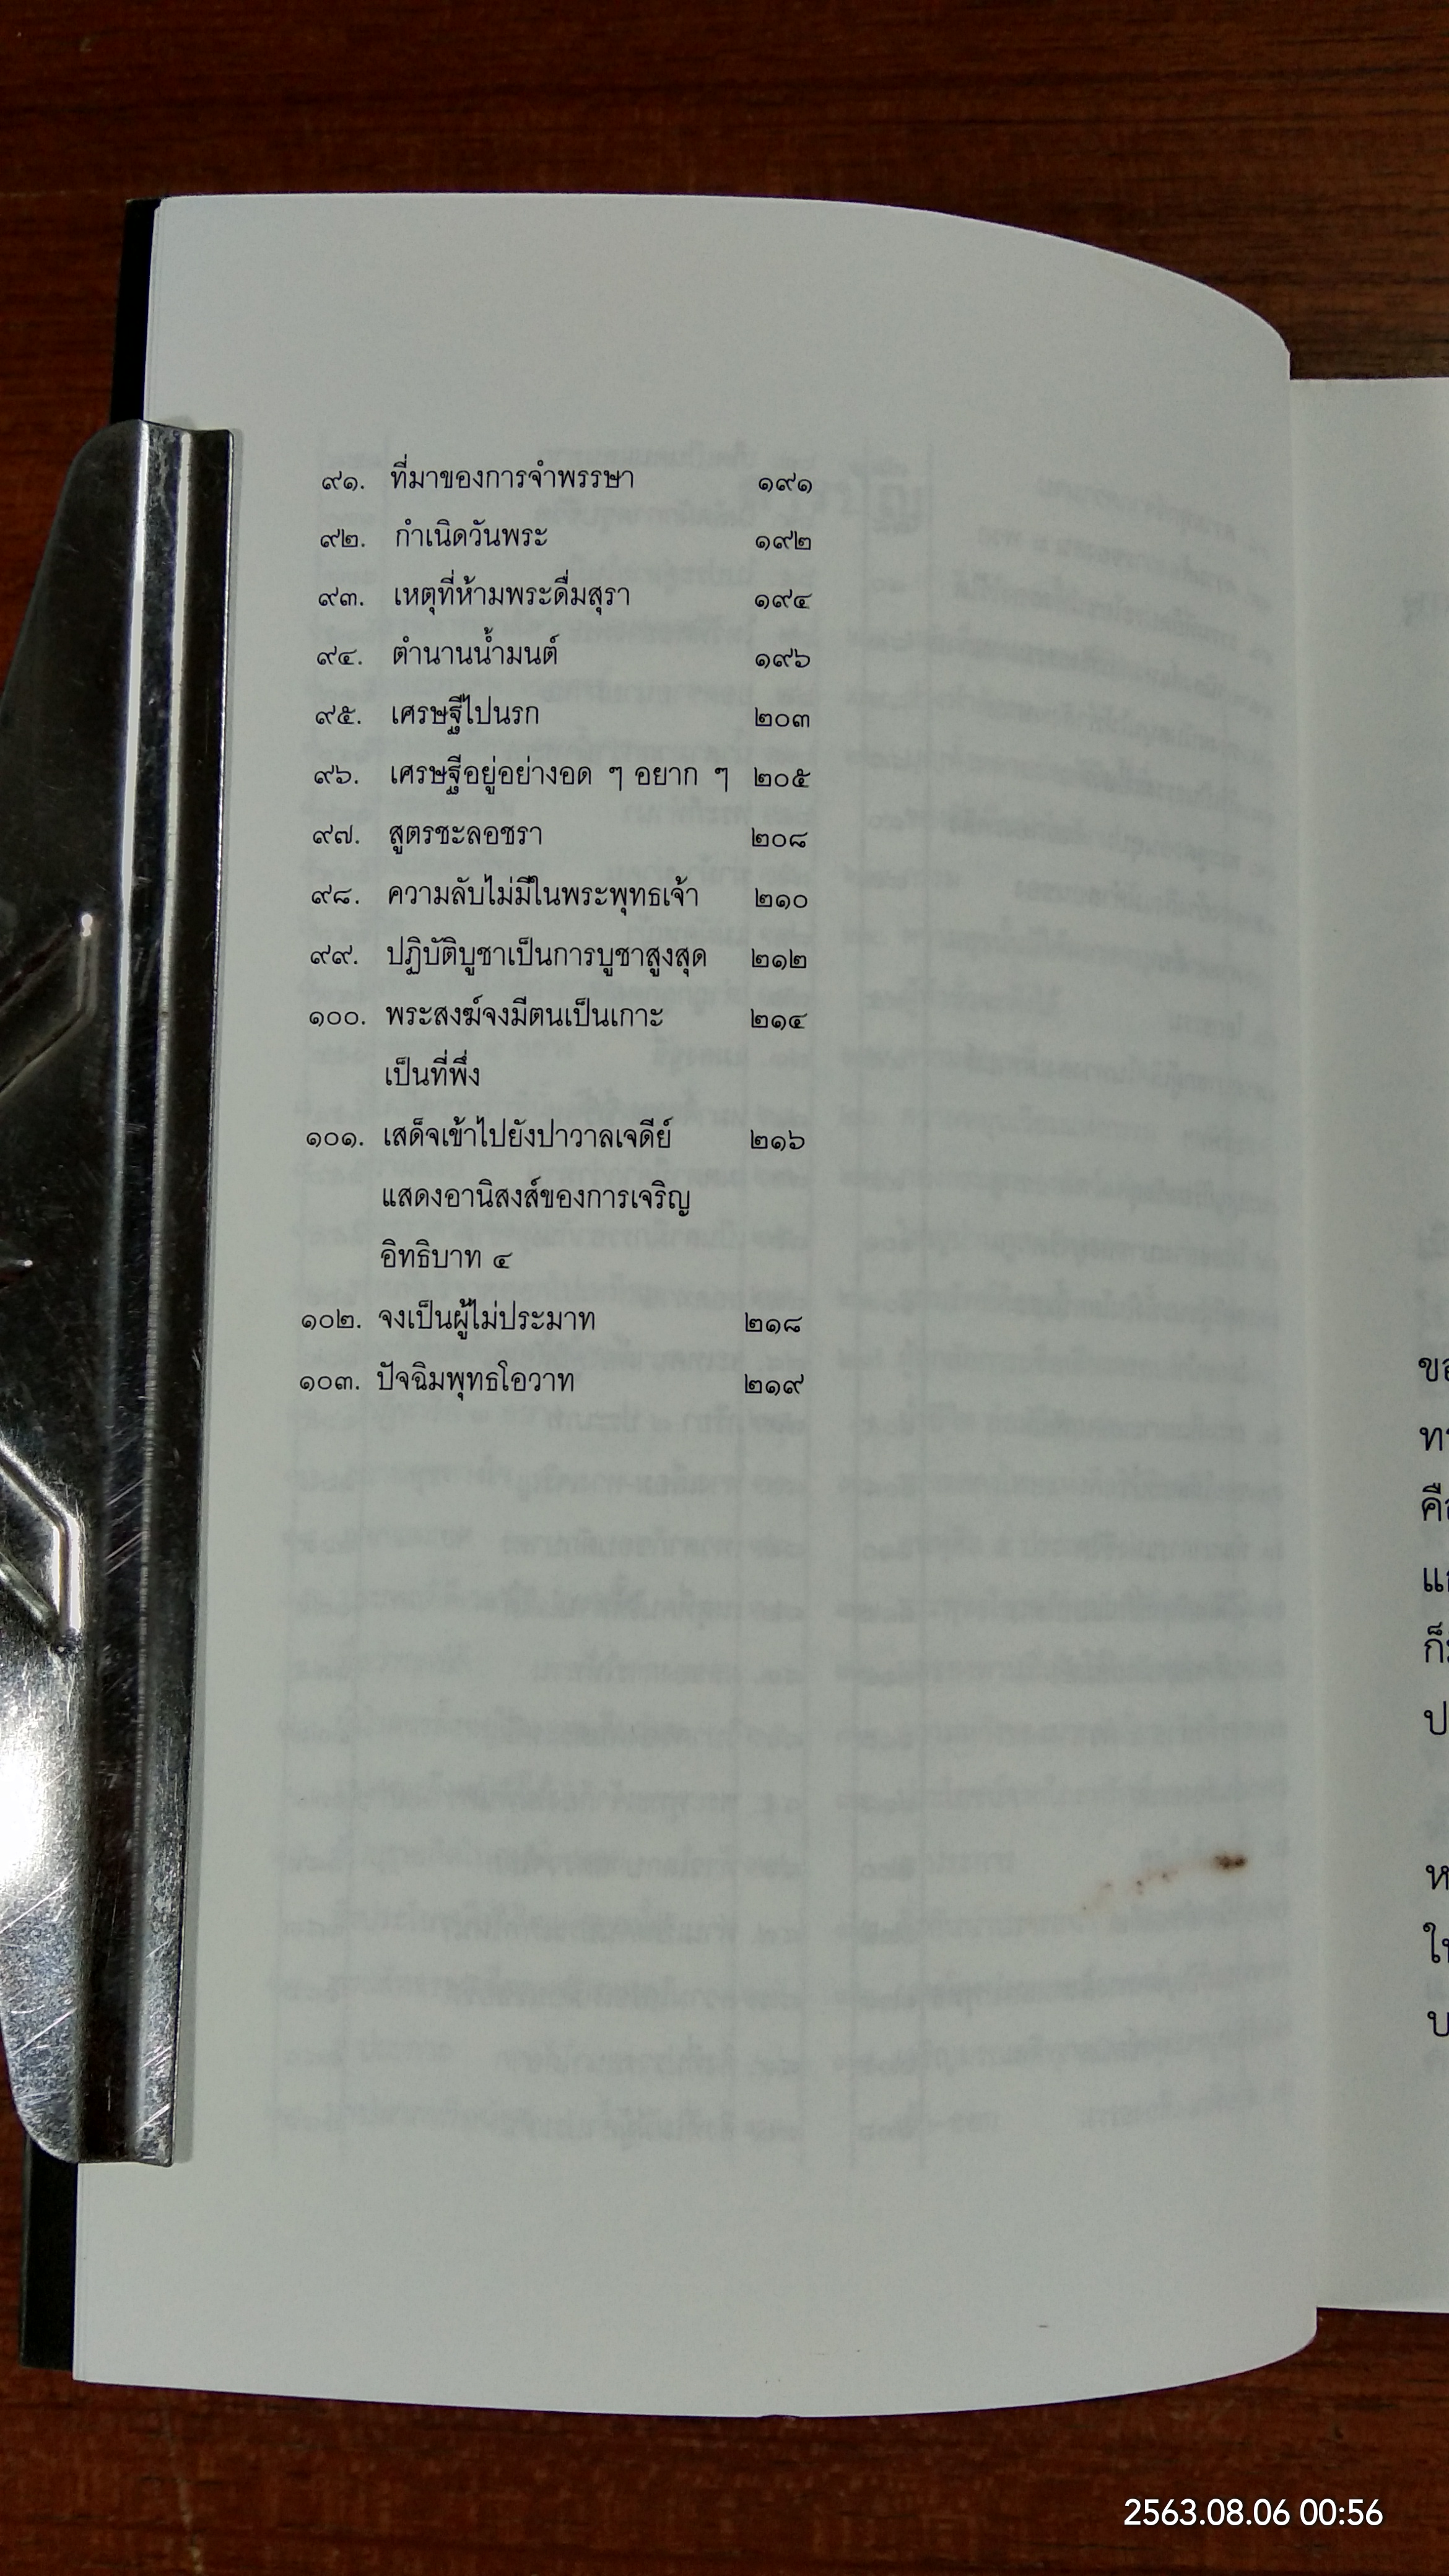 ๙๑. ที่มาของการจำพรรษา ๑๙๑
๙๒. กำเนิดวันพระ ๑๙๒
๙๓. เหตุที่ห้ามพระดื่มสุรา ๑๙๔
๙๔. ตำนานน้ำมนต์ ๑๙๖
๙๕. เศรษฐีไปนรก ๒๐๓
๙๖. เศรษฐีอยู่อย่างอด ๆ อยาก ๆ ๒๐๕
๙๗. สูตรชะลอชรา ๒๐๘
๙๘. ความลับไม่มีในพระพุทธเจ้า ๒๑๐
๙๙. ปฏิบัติบูชาเป็นการบูชาสูงสุด ๒๑๒
๑๐๐. พระสงฆ์จงมีตนเป็นเกาะ ๒๑๔
เป็นที่พึ่ง
๑๐๑. เสด็จเข้าไปยังปาวาลเจดีย์ ๒๑๖
แสดงอานิสงส์ของการเจริญ
อิทธิบาท ๔
๑๐๒. จงเป็นผู้ไม่ประมาท ๒๑๘
๑๐๓. ปัจฉิมพุทธโอวาท ๒๑๙
2563.08.06 00:56